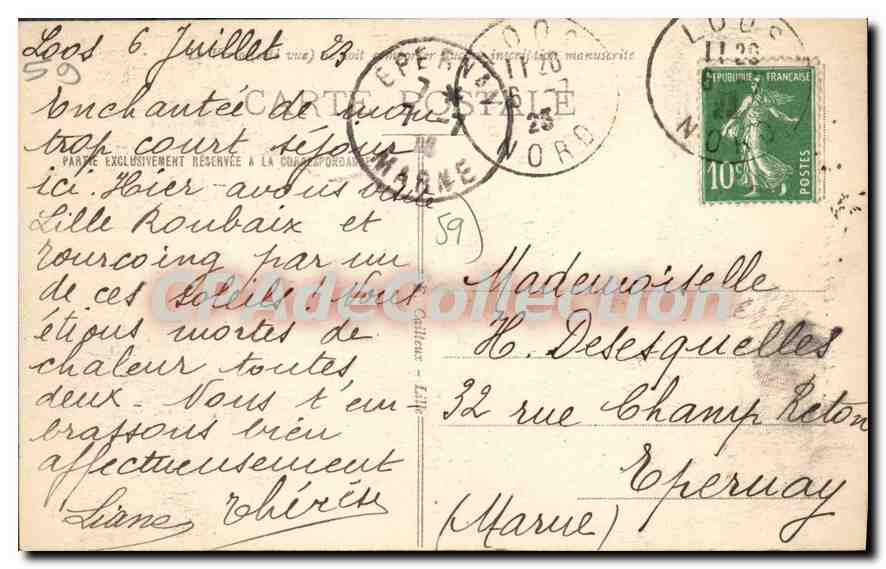 Loos 6 Juillet 23
59
CARTE POSTALE
PARTIE EXCLUSIVEMENT RÉSERVÉE A LA CORRESPONDANCE
Enchantée de mon
trop court séjour
ici. Hier avons visité
Lille Roubaix et
Tourcoing par un
de ces soleils! Nous
étions mortes de
chaleur toutes
deux. Nous t'em-
brassons bien
affectueusement
Liane Thérèse
EPERNAY
7 *
7 - 7
MARNE
LOOS
11 20
6 - 7
23
NORD
LOOS
11 20
NORD
REPUBLIQUE FRANÇAISE
10c
POSTES
59
Cailteux - Lille
CPAdeCollection
Mademoiselle
H. Desesquelles
32 rue Champ Reton
Epernay
(Marne)